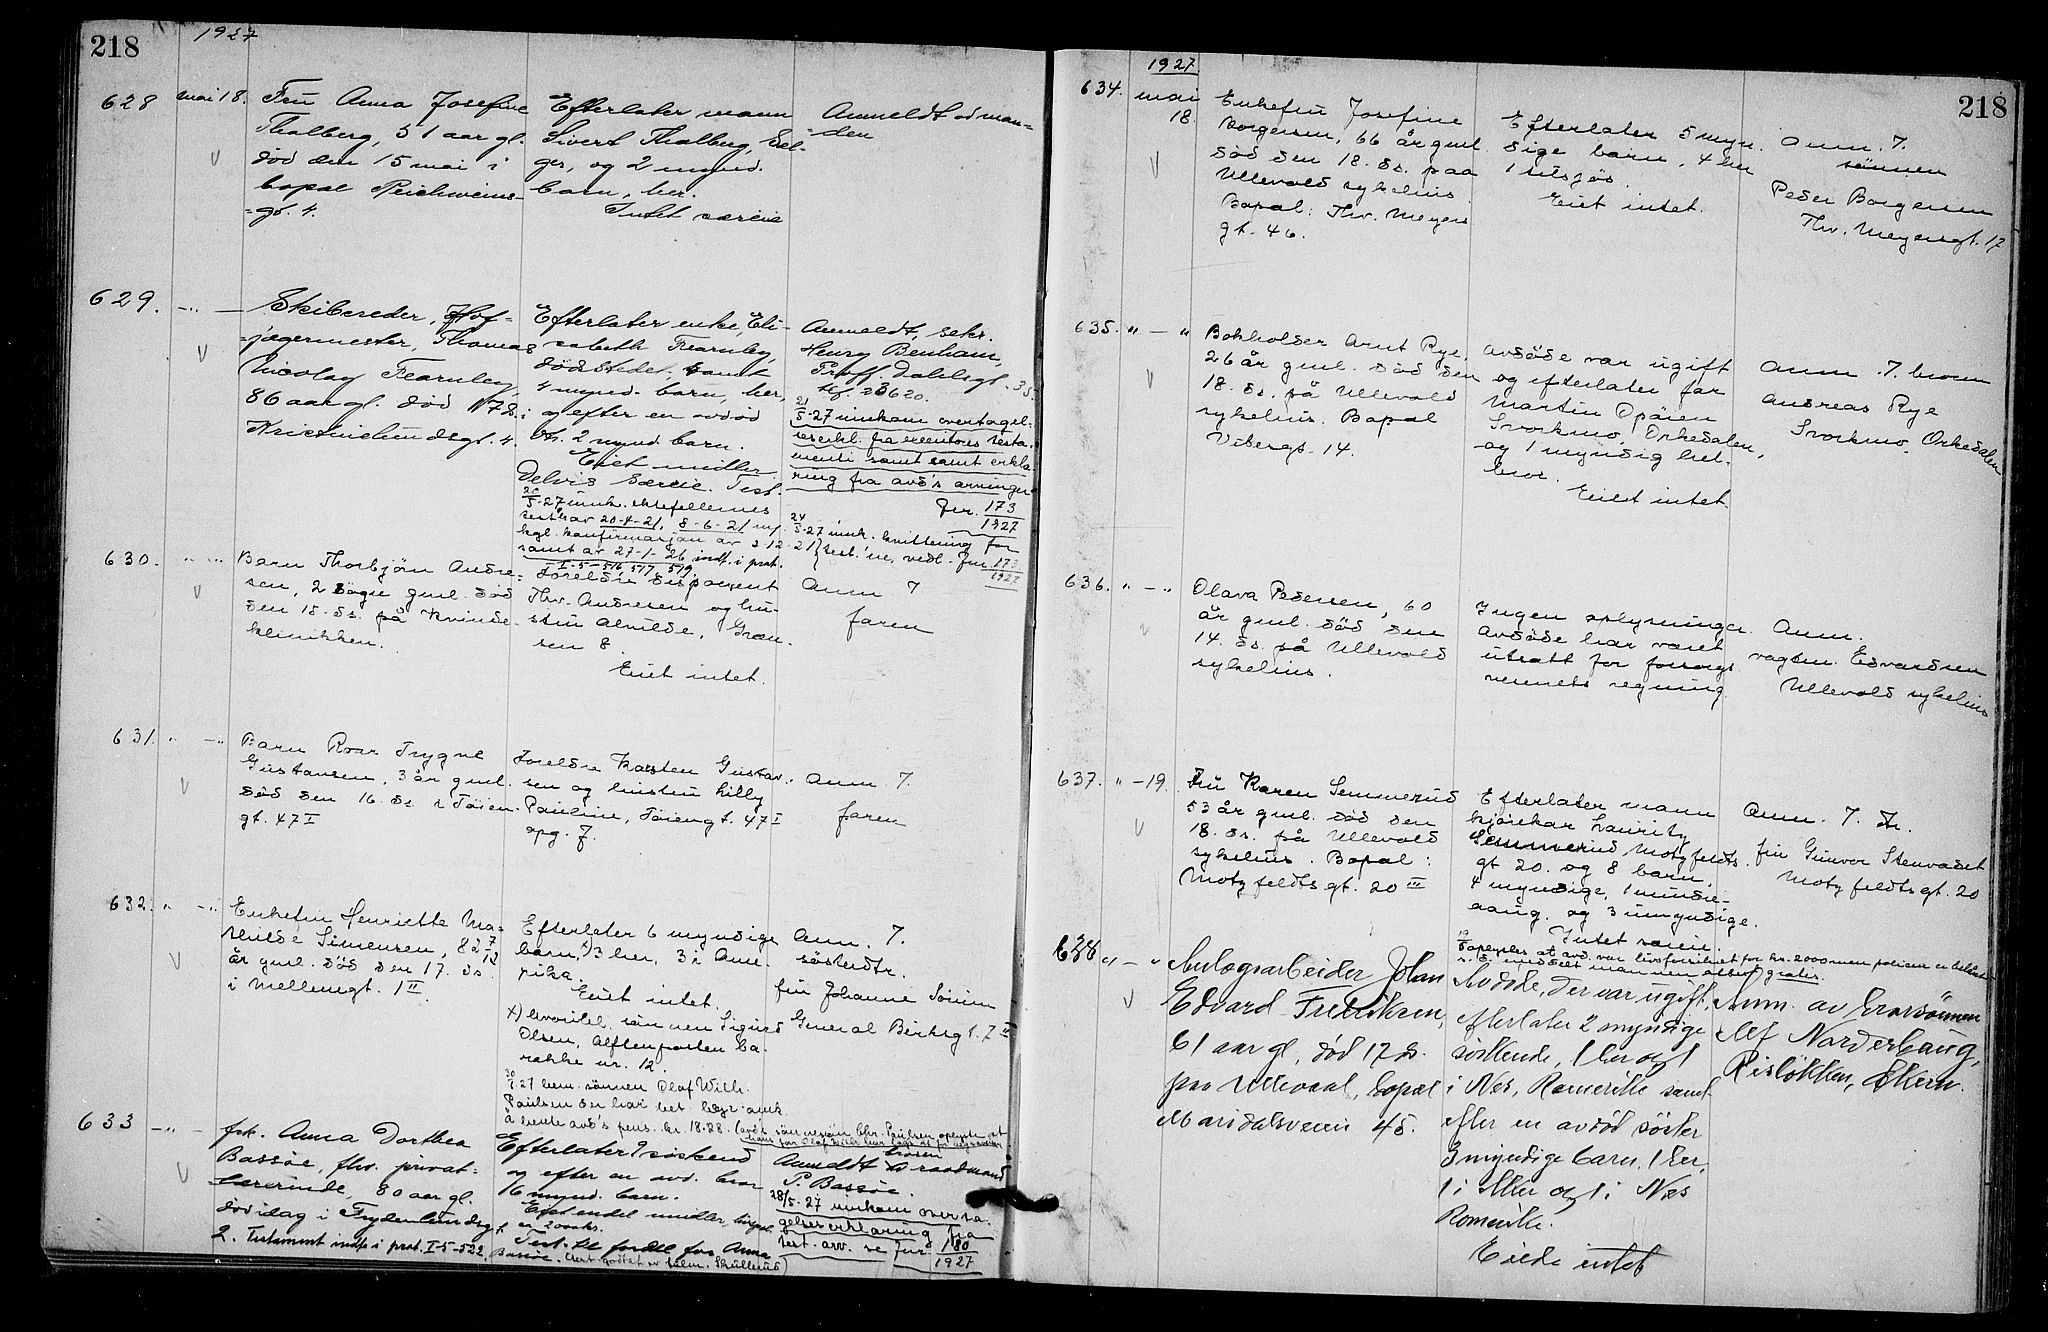 218
1927
628
mai 18.
Fru Anna Josefine
Thalberg, 51 aar gl.
död den 15 mai i
bopæl Reichweins-
=gt. 4.
Efterlater mann
Sivert Thalberg, Sel-
ger, og 2 mynd.
barn, her.
Intet særeie
Anmeldt av man-
=den
629.
Skibsreder, Hof-
=jægermester, Thomas
Nicolay Fearnley,
86 aar gl. død 17 ds. i
Kristinelundsgt. 4.
Efterlater enke, Eli-
sabeth Fearnley,
dödstedet, samt
4 mynd. barn, her,
og efter en avdød
2 mynd barn.
Eiet midler
Delvis særeie. Test.
26/5-27 innk. ektefellenes
test. av 20-4-21, 8-6-21 m/
kgl. konfirmasjon av 2-12-21
samt av 27-1-26 indt. i prot.
I-5-576, 577, 579.
Anmeldt, sekr.
Henry Benham,
Proff. Dahlsgt. 35
tlf. 23620.
21/5-27 innkom overtagel-
seserkl. fra testa-
menti samt samt erklæ-
ring fra avd's arvinger
Jnr. 173
1927
24/5-27 innk. kvittering for
test.'ne, vedl. Jnr. 173
1927
630.
Barn Thorbjörn Andre-
sen, 2 dögn gml. död
den 18. ds. på Kvinde-
klinikken.
Foreldre disponent
Thv. Andresen og hu-
stru Alvilde, Græn-
sen 8.
Eiet intet.
Anm. 7
faren
631.
Barn Roar Trygve
Gustavsen, 3 år gml.
död den 16. ds. i Töien-
gt. 47 I
Foreldre Karsten Gustav-
sen og hustru Lilly
Pauline, Töiengt. 47 I
opg. 7.
Anm. 7.
faren
632.
Enkefru Henriette Ma-
thilde Simensen, 82 7/12
år gml. död den 17. ds.
i Möllergt. 1 II.
Efterlater 6 myndige
barn, x) 3 her, 3 i Ame-
rika.
Eiet intet.
x) hvoribl. sönnen Sigurd
Olsen, Aftenposten ba-
rakke nr. 12.
30/5 27 bem. sönnen Olaf Wilh.
Paulsen
Å hente avd's pens. kr. 18.28.
Anm. 7.
fru Johanne
General Birchsgt. 7 II
633
frk. Anna Dorthea
Bassøe, fhv. privat-
=lærerinde, 80 aar gl.
död idag i Frydenlundsgt.
2. Testament indf. i prot. I-5-522.
Efterlater 7 söskend
og efter en avd. bror
16 mynd. barn.
Eiet endel midler,
ca. 200 kr.
Test. til fordel for Anna
Bassøe.
Anmeldt av broren
raadmand
P. Bassøe.
28/5-27 innkom overta-
gelseserklæring fra
test. arv. se Jnr 180
1927
218
1927
634.
mai
18.
Enkefru Josefine
Borgersen, 66 år gml.
död den 18. ds. paa
Ullevold sykehus.
Bopæl: Thv. Meyers
gt. 46.
Efterlater 5 myn-
dige barn, 4 her
1 tilsjøs.
Eiet intet.
Anm. 7.
sönnen
Peder Borgersen
Thv. Meyersgt. 17
635. " — "
Bokholder Arnt Rye,
26 år gml. död den
18. ds. på Ullevold
sykehus. Bopæl
Vibesgt. 14.
Avdøde var ugift
og efterlater far
Martin Opöien
Svorkmo, Orkedalen,
og 1 myndig hel-
bror.
Eiet intet.
Anm. 7. broren
Andreas Rye
Svorkmo, Orkedalen
636. " — "
Olava Pedersen, 60
år gml. död den
14. ds. på Ullevold
sykehus.
Ingen oplysninger.
Avdøde har været
utsatt for forsorgs
vesenets regning
Anm.
vagtm. Edvardsen
Ullevold sykehus
637. " — 19.
Fru Karen Semmerud
53 år gml. död den
18. ds. på Ullevold
sykehus. Bopæl:
Motzfeldtsgt. 20 III
Efterlater mann
kjørekar Lauritz
Semmerud, Motzfeldts
gt 20. og 8 barn,
4 myndige, 1 mindre-
aarig. og 3 umyndige.
Intet særeie.
oplystes at avd. var livsforsikret for kr. 2000
Anm. 7. dtr.
fru Gunvor Stenvadet
Motzfeldtsgt. 20
638 " — "
Anlægsarbeider Johan
Edvard Fredriksen,
61 aar gl, død 17 ds.
paa Ullevaal, bopæl
Maridalsveien 45.
Avdøde, der var ugift,
efterlater 2 myndige
söskende, 1 her og 1
i Nes, Romerike samt
efter en avdød søster
3 myndige barn, 1 her,
1 i Aker og 1 i Nes
Romerike.
Eiede intet
Anm. av brorsönnen
Alf Norderhaug,
Risløkken, Økern.